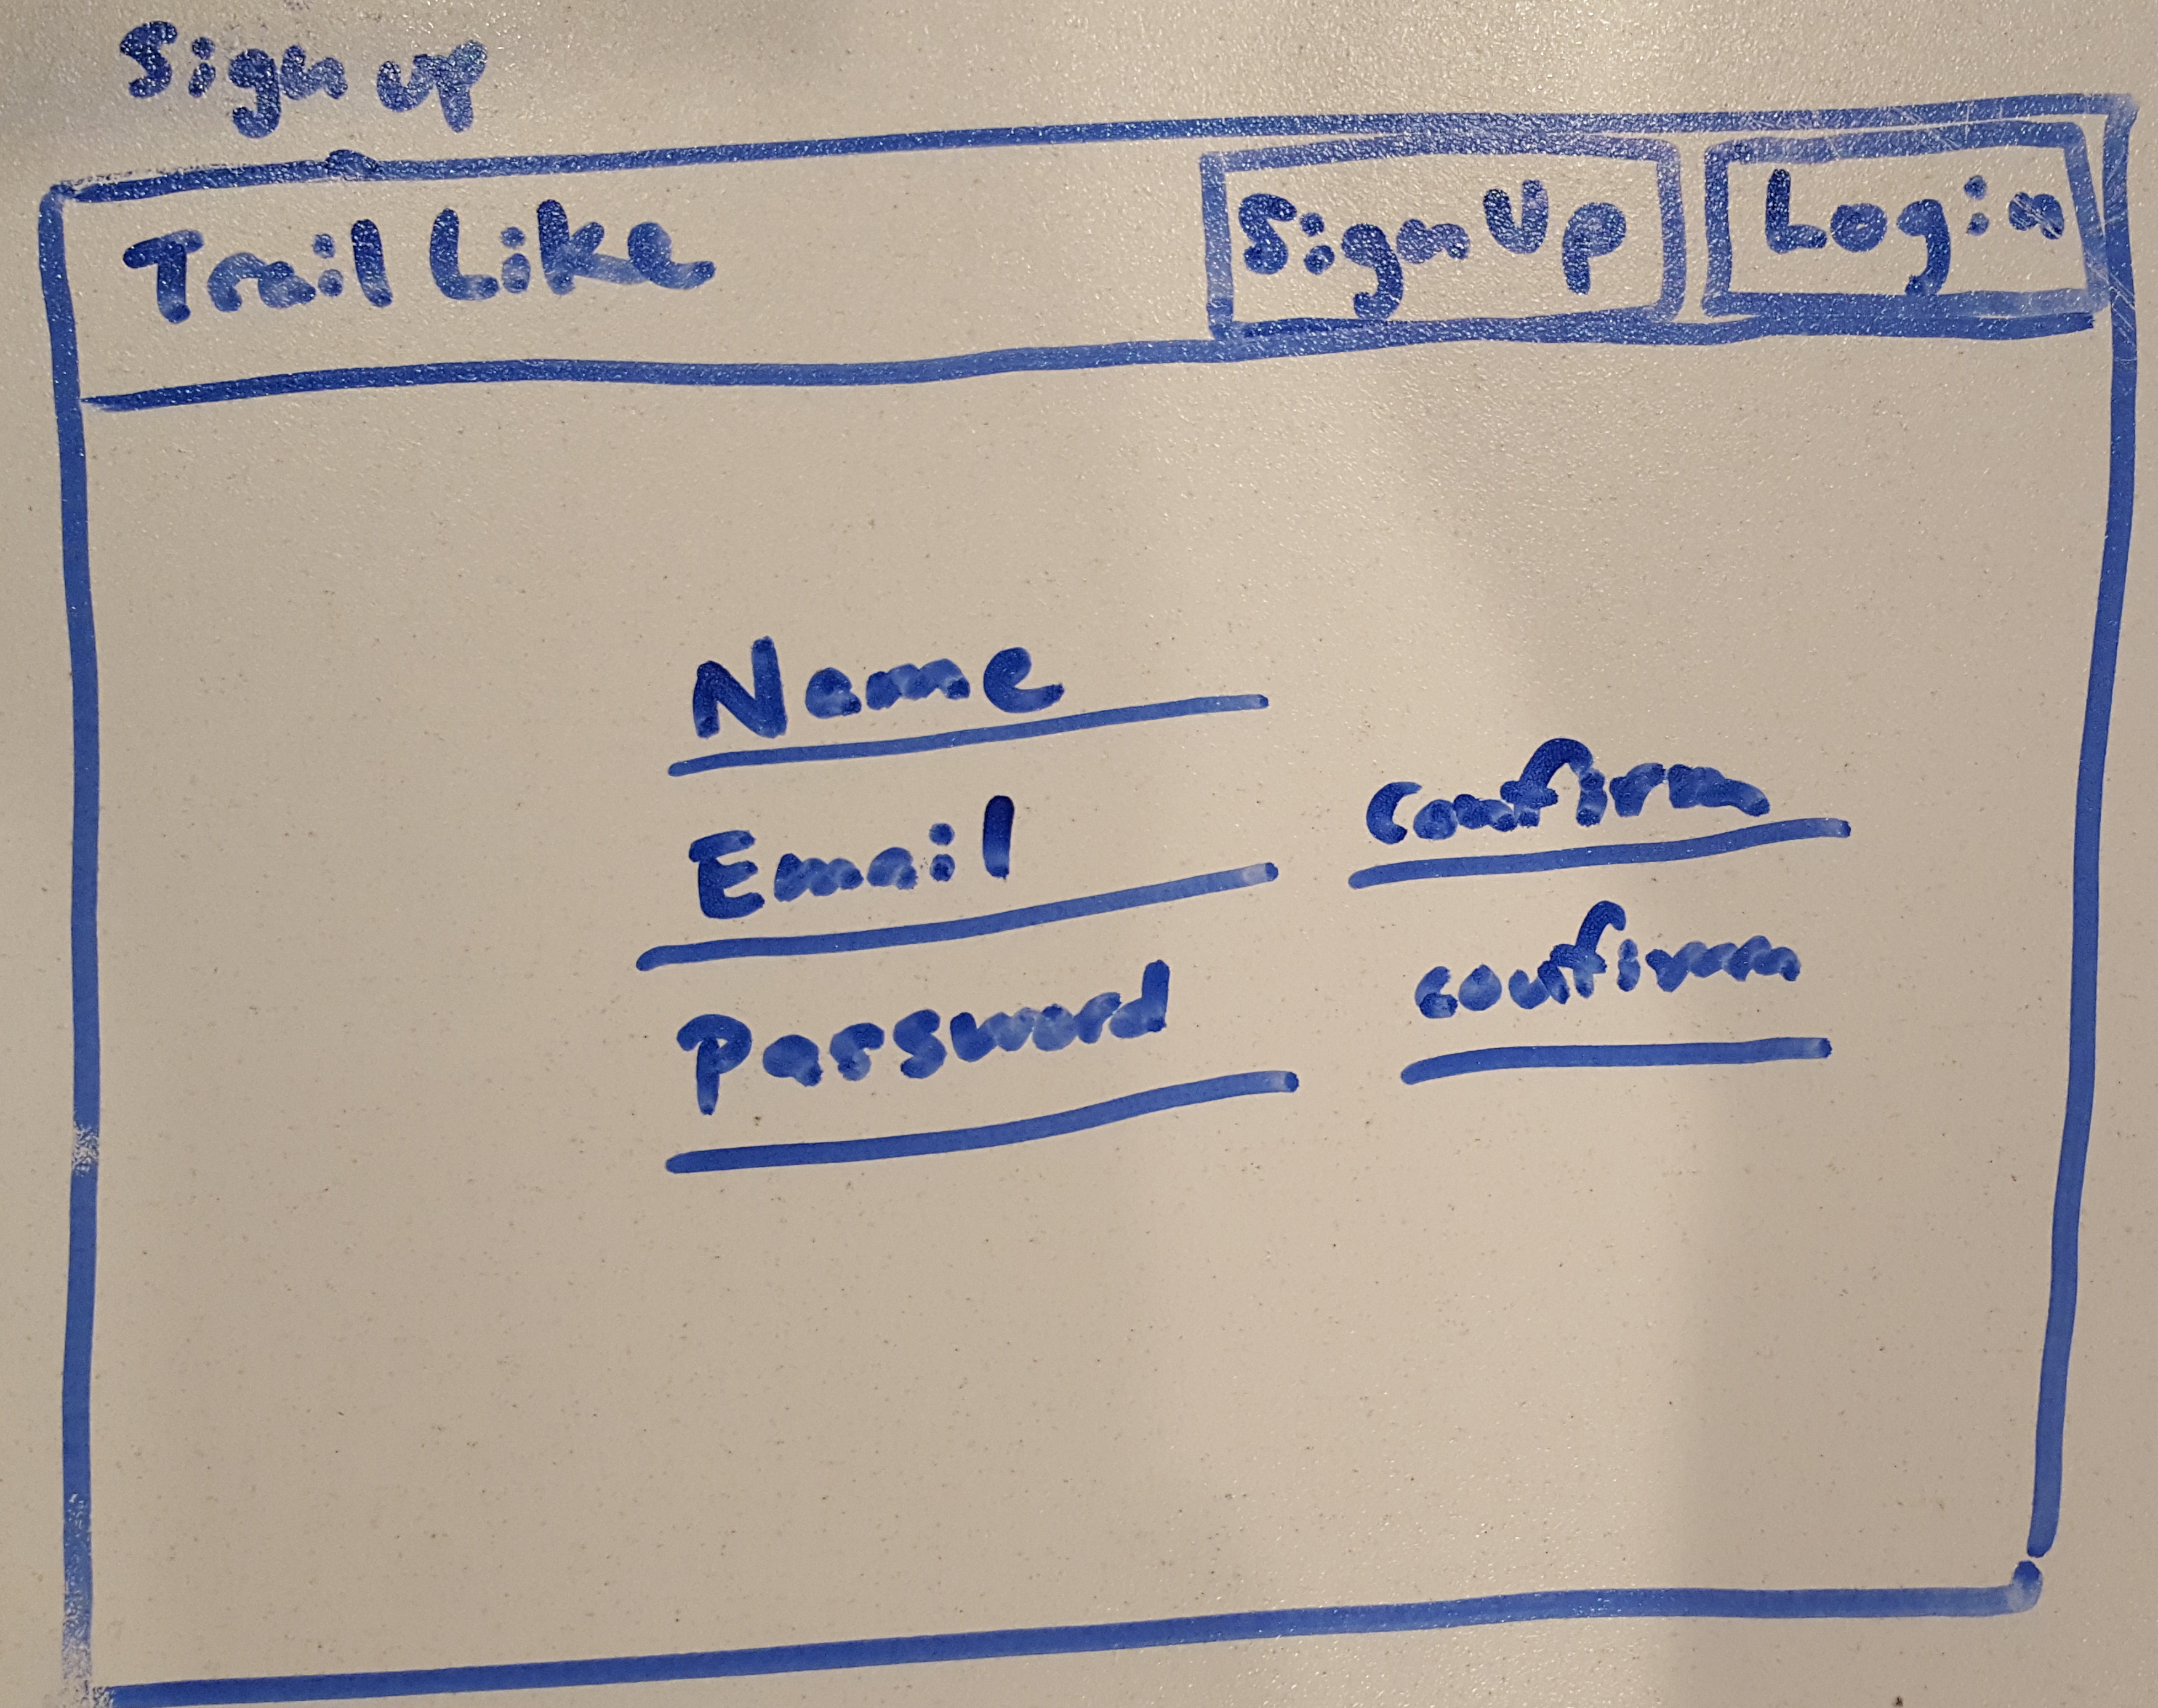 Sign up
Trail Like
Sign Up
Login
Name
Email
confirm
Password
confirm